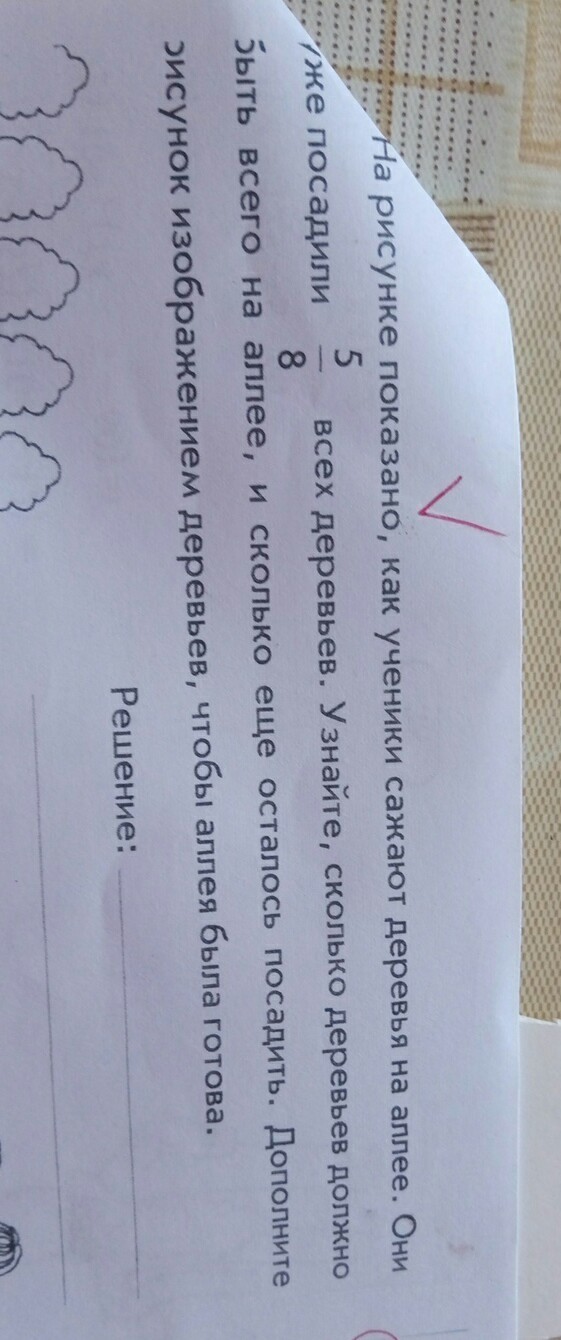 На рисунке показано, как ученики сажают деревья на аллее. Они
уже посадили 5/8 всех деревьев. Узнайте, сколько деревьев должно
быть всего на аллее, и сколько еще осталось посадить. Дополните
рисунок изображением деревьев, чтобы аллея была готова.
Решение: